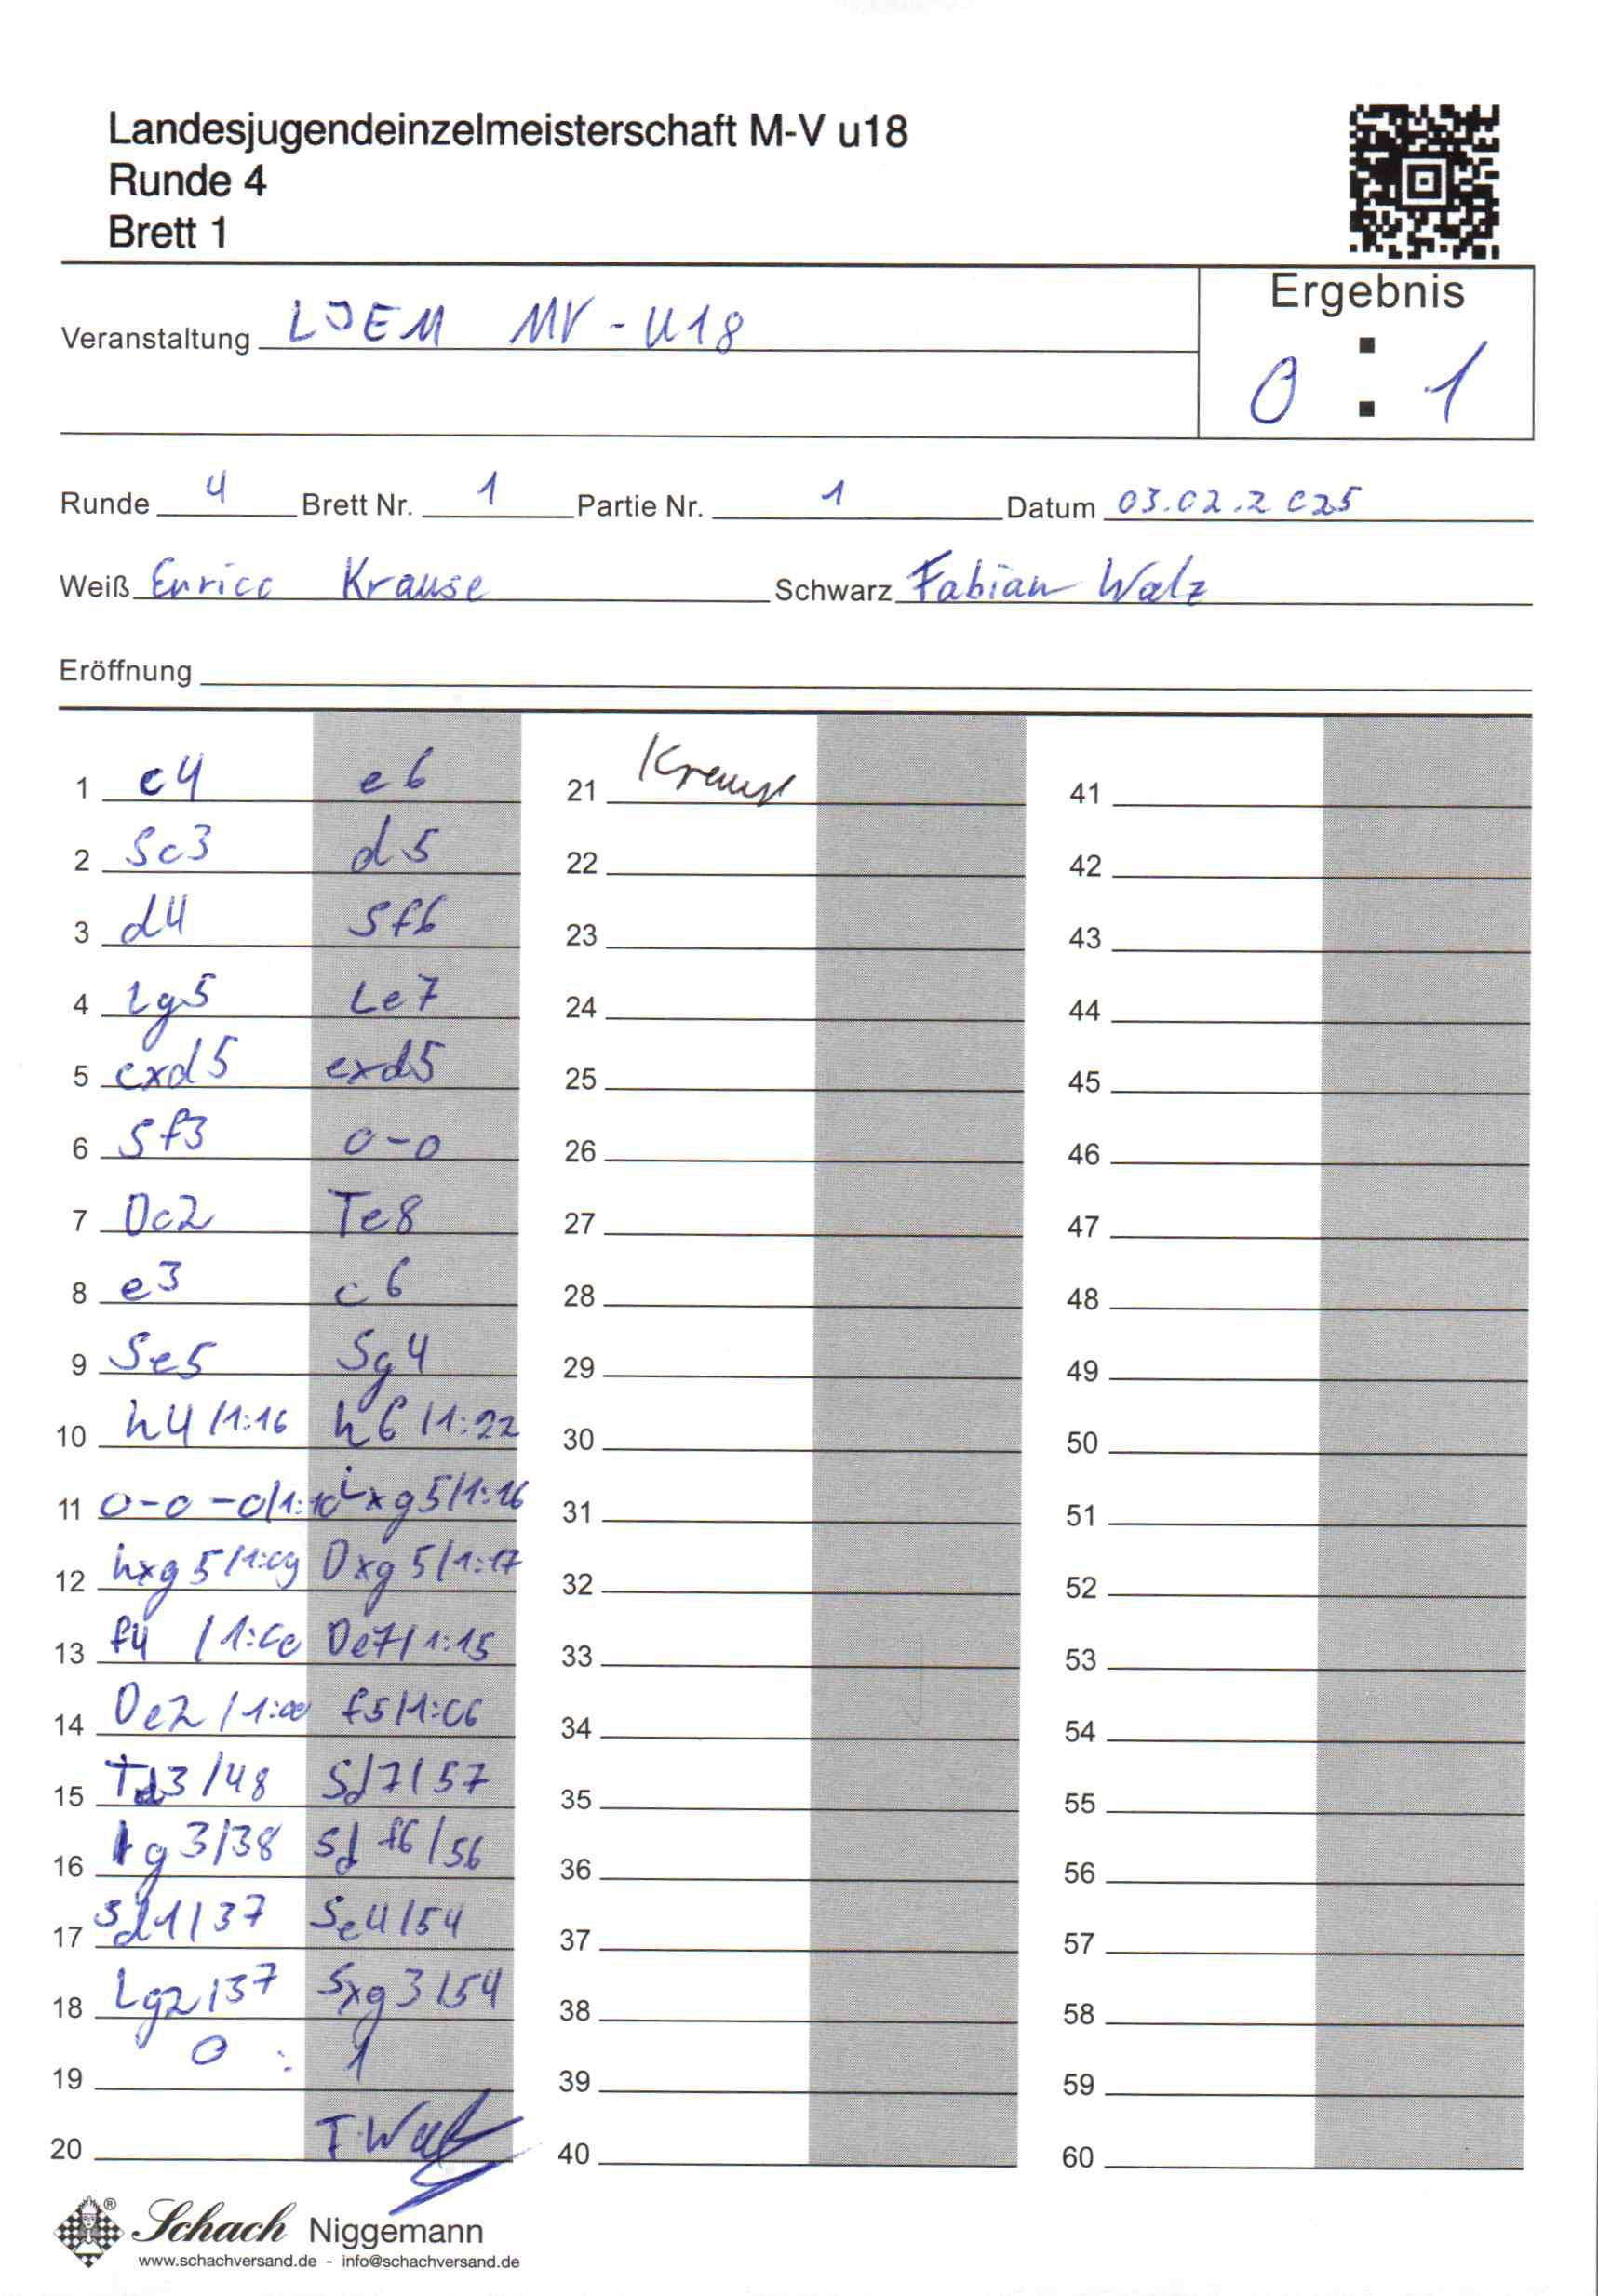 Landesjugendeinzelmeisterschaft M-V u18
Runde 4
Brett 1
Ergebnis
Veranstaltung LJEM MV-U18
0 : 1
Runde 4 Brett Nr. 1 Partie Nr. 1 Datum 03.02.2025
Weiß Enrico Krause Schwarz Fabian Walz
Eröffnung
1 c4 e6 21 Krause 41
2 Sc3 d5 22 42
3 d4 Sf6 23 43
4 Lg5 Le7 24 44
5 cxd5 exd5 25 45
6 Sf3 0-0 26 46
7 Dc2 Te8 27 47
8 e3 c6 28 48
9 Se5 Sg4 29 49
10 h4/1:16 h6/1:22 30 50
11 0-0-0/1:10 Lxg5/1:16 31 51
12 hxg5/1:09 Dxg5/1:17 32 52
13 f4 De7/1:15 33 53
14 De2/1:00 f5/1:06 34 54
15 Td3/48 Sd7/57 35 55
16 g3/38 Sdf6/56 36 56
17 Sd1/37 Se4/54 37 57
18 Lg2/37 Sxg3/54 38 58
19 0 : 1 39 59
20 F. Walz 40 60
Schach Niggemann
www.schachversand.de - info@schachversand.de